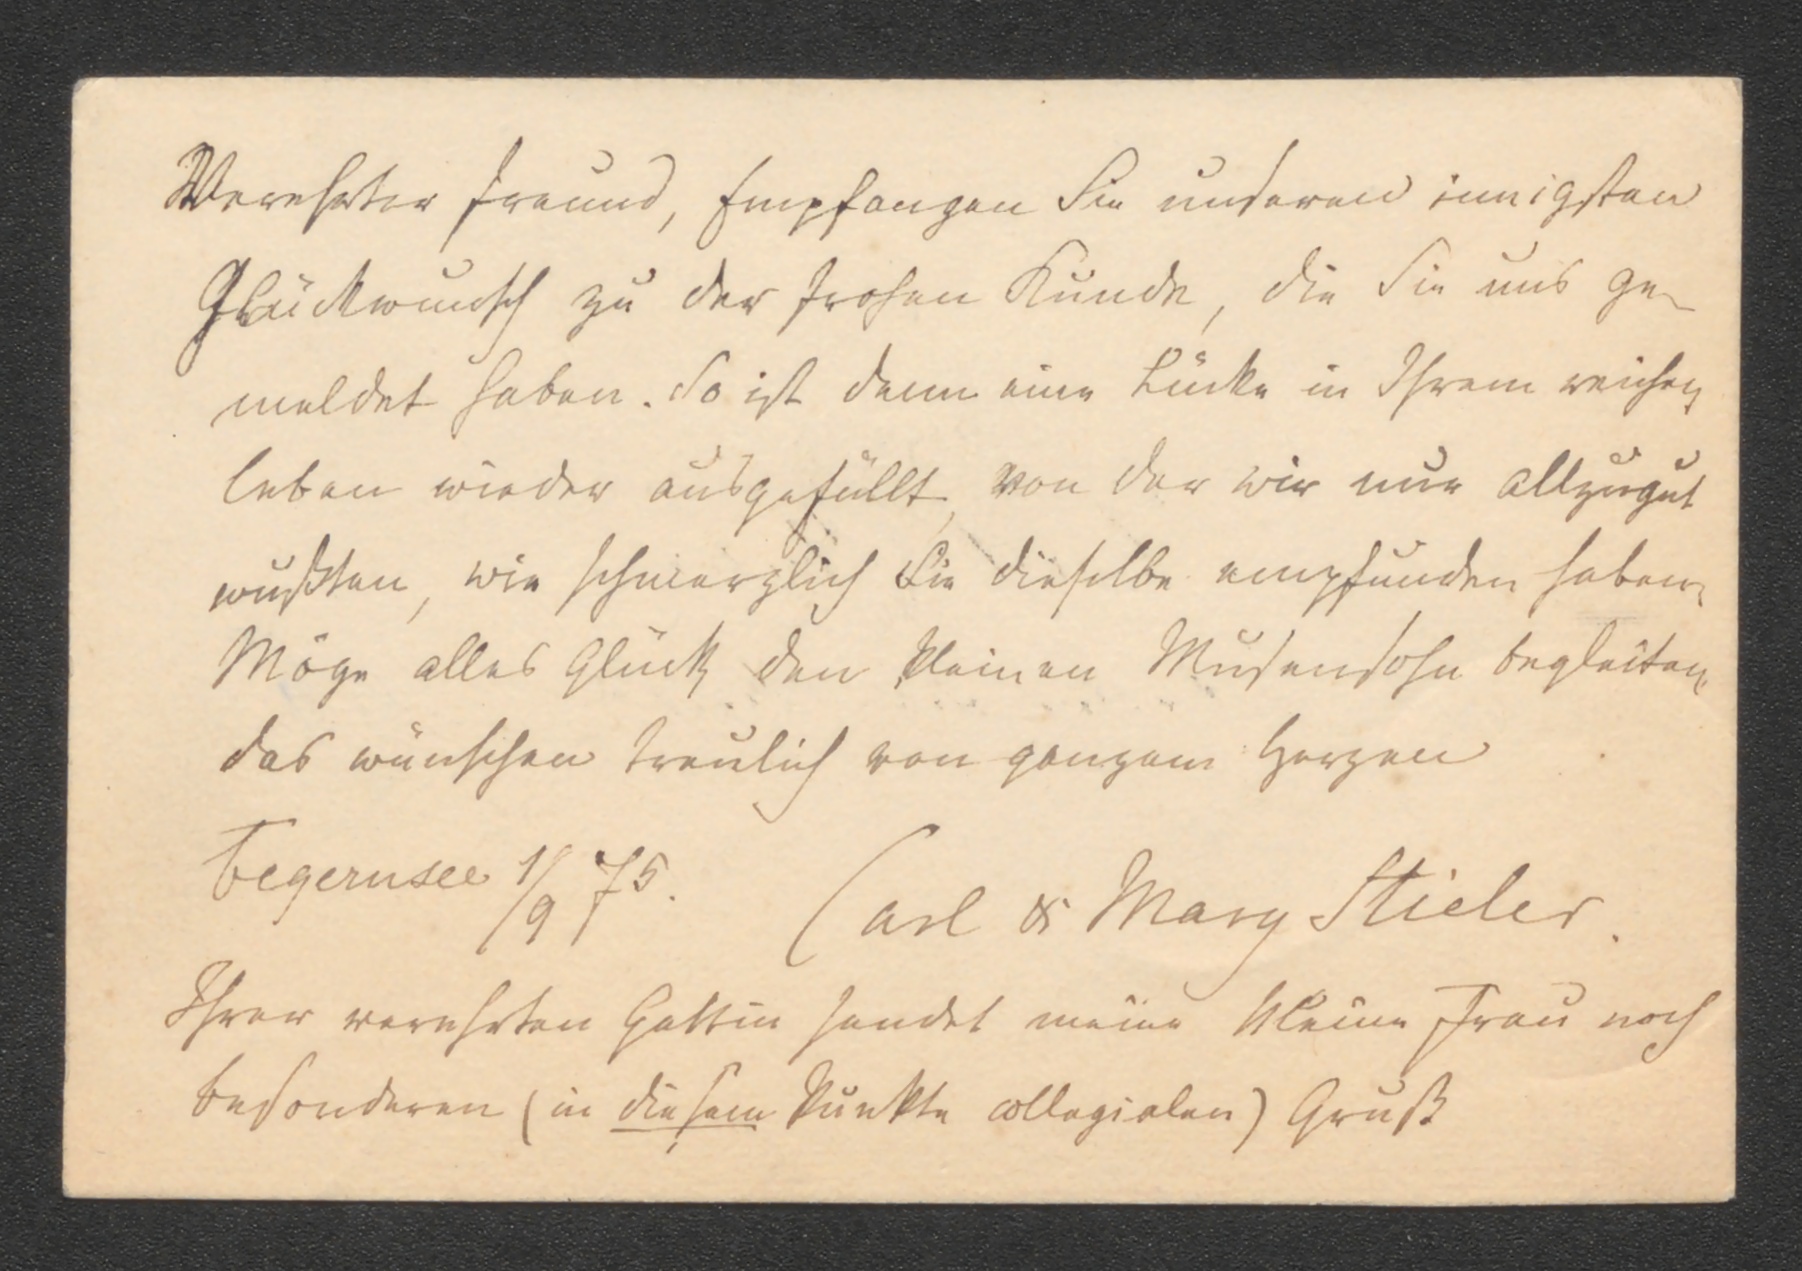 Verehrter Freund, Empfangen Sie unseren innigsten
Glückwunsch zu der frohen Kunde, die Sie uns ge-
meldet haben. So ist denn eine Lücke in Ihrem reichen
Leben wieder ausgefüllt, von der wir nur allzugut
wußten, wie schmerzlich Sie dieselbe empfunden haben.
Möge alles Glück den kleinen Musensohn begleiten,
das wünschen treulich von ganzem Herzen
Tegernsee 1/9 75. Carl & Mary Stieler.
Ihrer verehrten Gattin sendet meine kleine Frau noch
besonderen (in diesem Punkte collegialen) Gruß